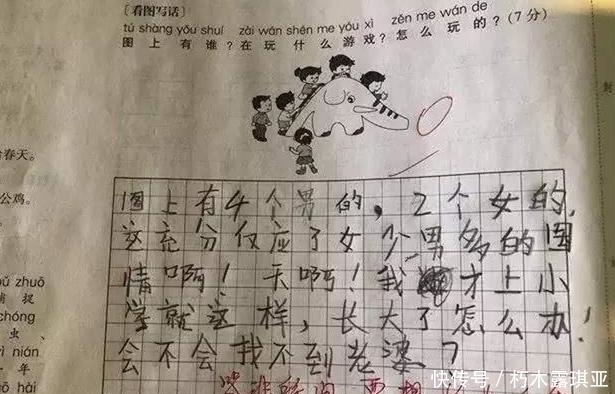 [看图写话]
tú shàng yǒu shuí zài wán shén me yóu xì zěn me wán de
图上有谁？在玩什么游戏？怎么玩的？(7分)
春天。
公鸡。
zhuō
捕捉
chóng
虫、
nián
年
hài
图上有4个男的，2个女的，
这充分仅应了女少男多的国
情啊！天啊！我才上小
学就这样，长大了怎么办！
会不会找不到老婆？
快传号／朽木露琪亚